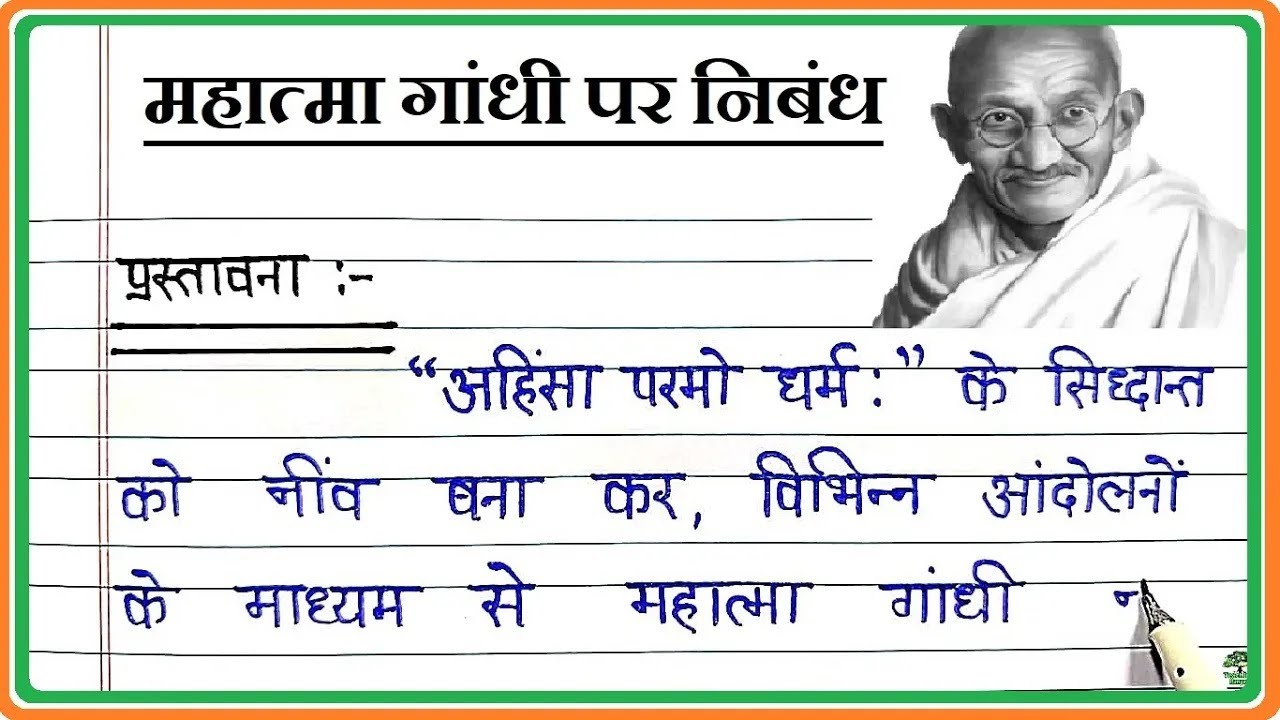 महात्मा गांधी पर निबंध
प्रस्तावना :-
“अहिंसा परमो धर्म:” के सिद्धान्त
को नींव बना कर, विभिन्न आंदोलनों
के माध्यम से महात्मा गांधी